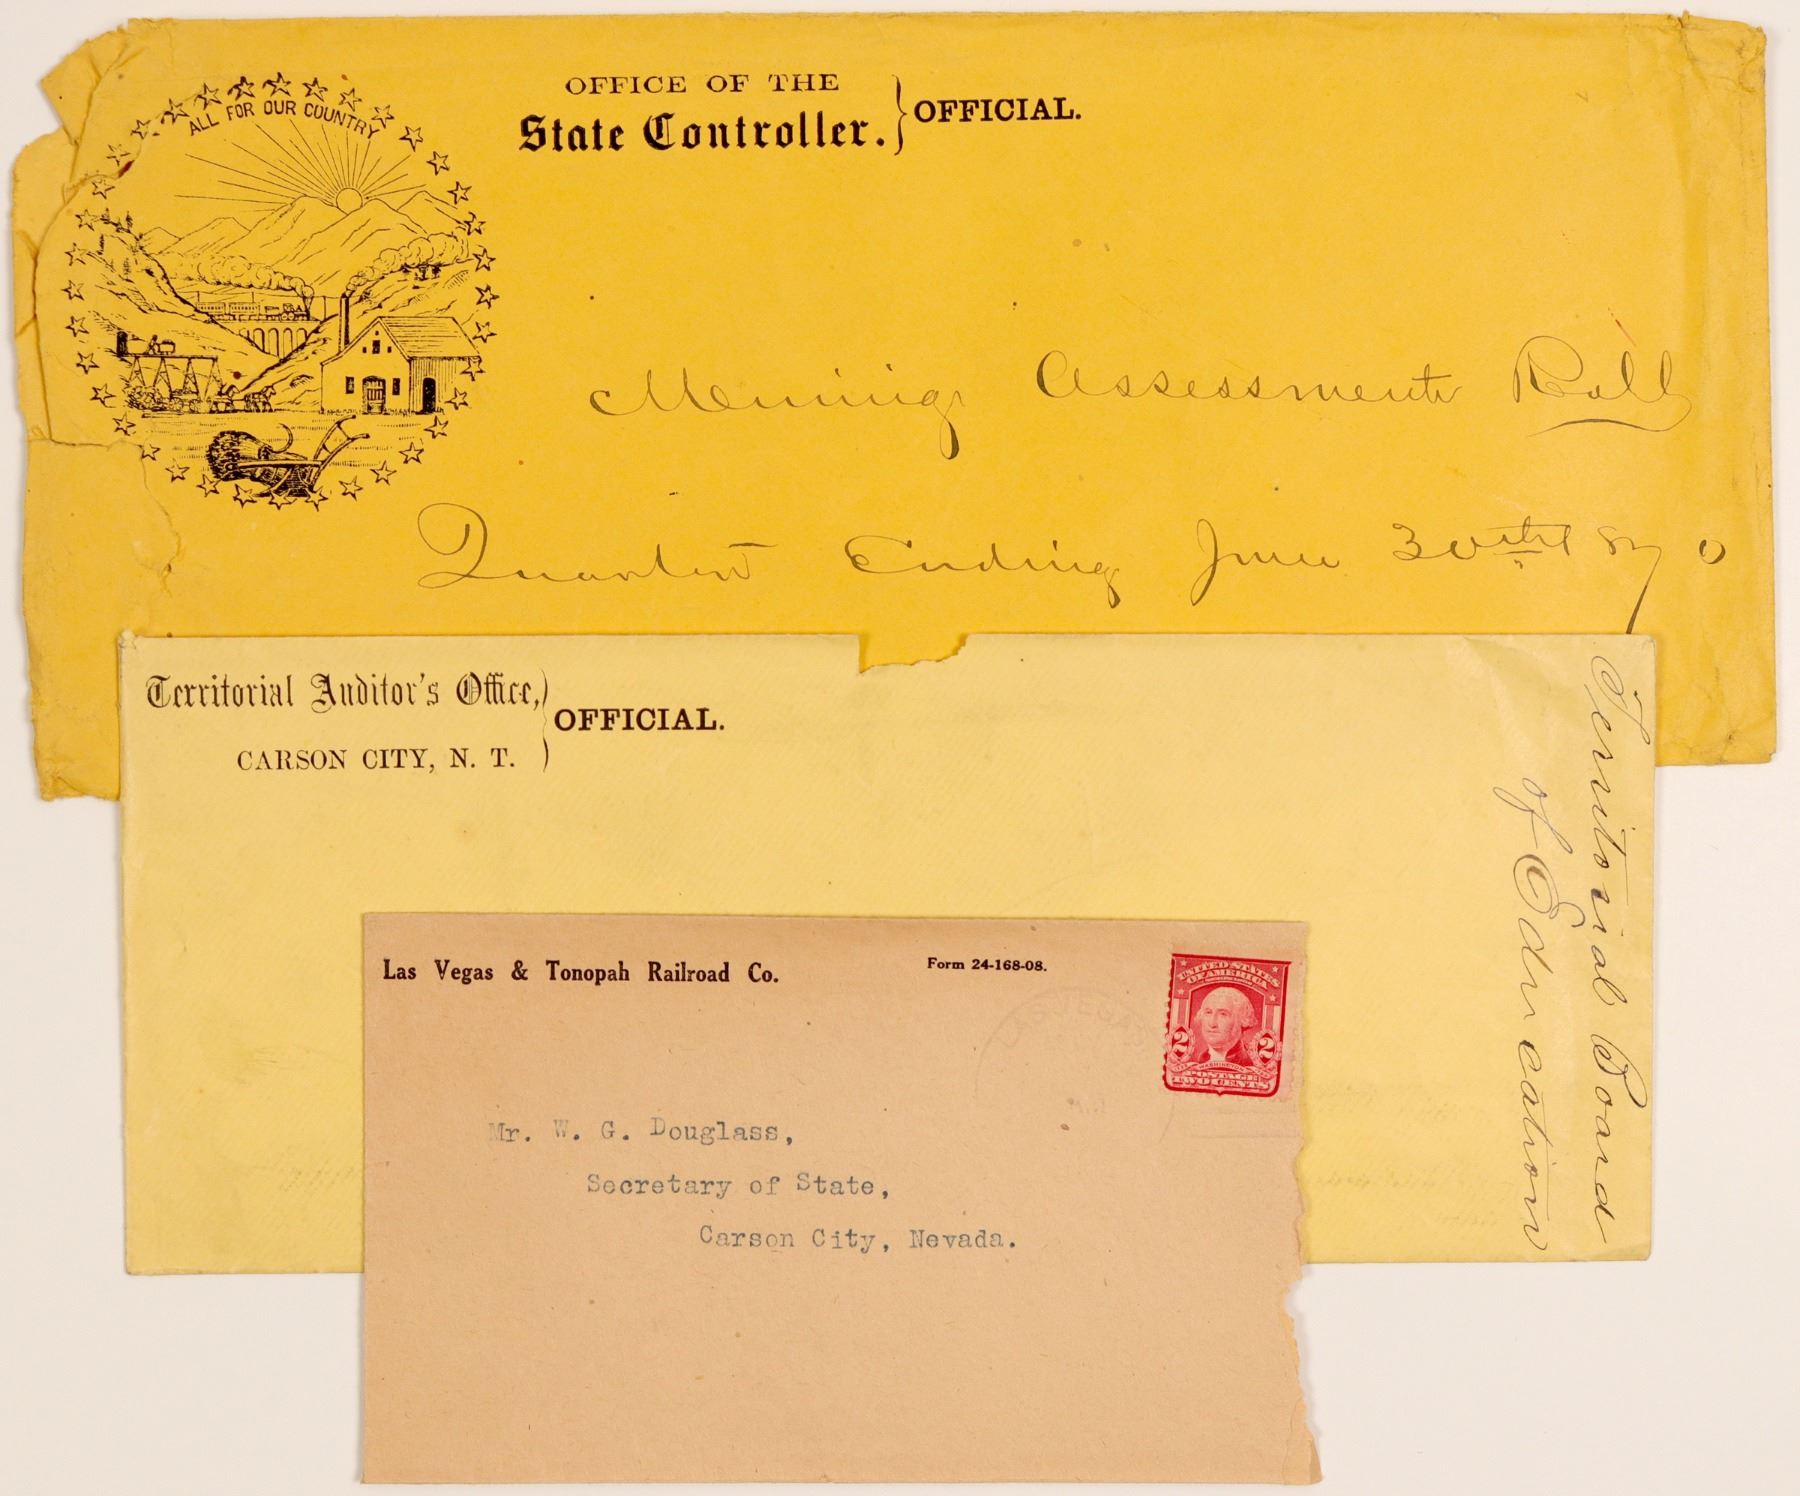 ALL FOR OUR COUNTRY
OFFICE OF THE
State Controller. } OFFICIAL.
Mining Assessment Roll
Quarter Ending June 30th 870
Territorial Auditor's Office, } OFFICIAL.
CARSON CITY, N. T.
Territorial Board
of Education
Las Vegas & Tonopah Railroad Co.
Form 24-168-08.
UNITED STATES
OF AMERICA
2 2
WASHINGTON
POSTAGE
TWO CENTS
Mr. W. G. Douglass,
Secretary of State,
Carson City, Nevada.